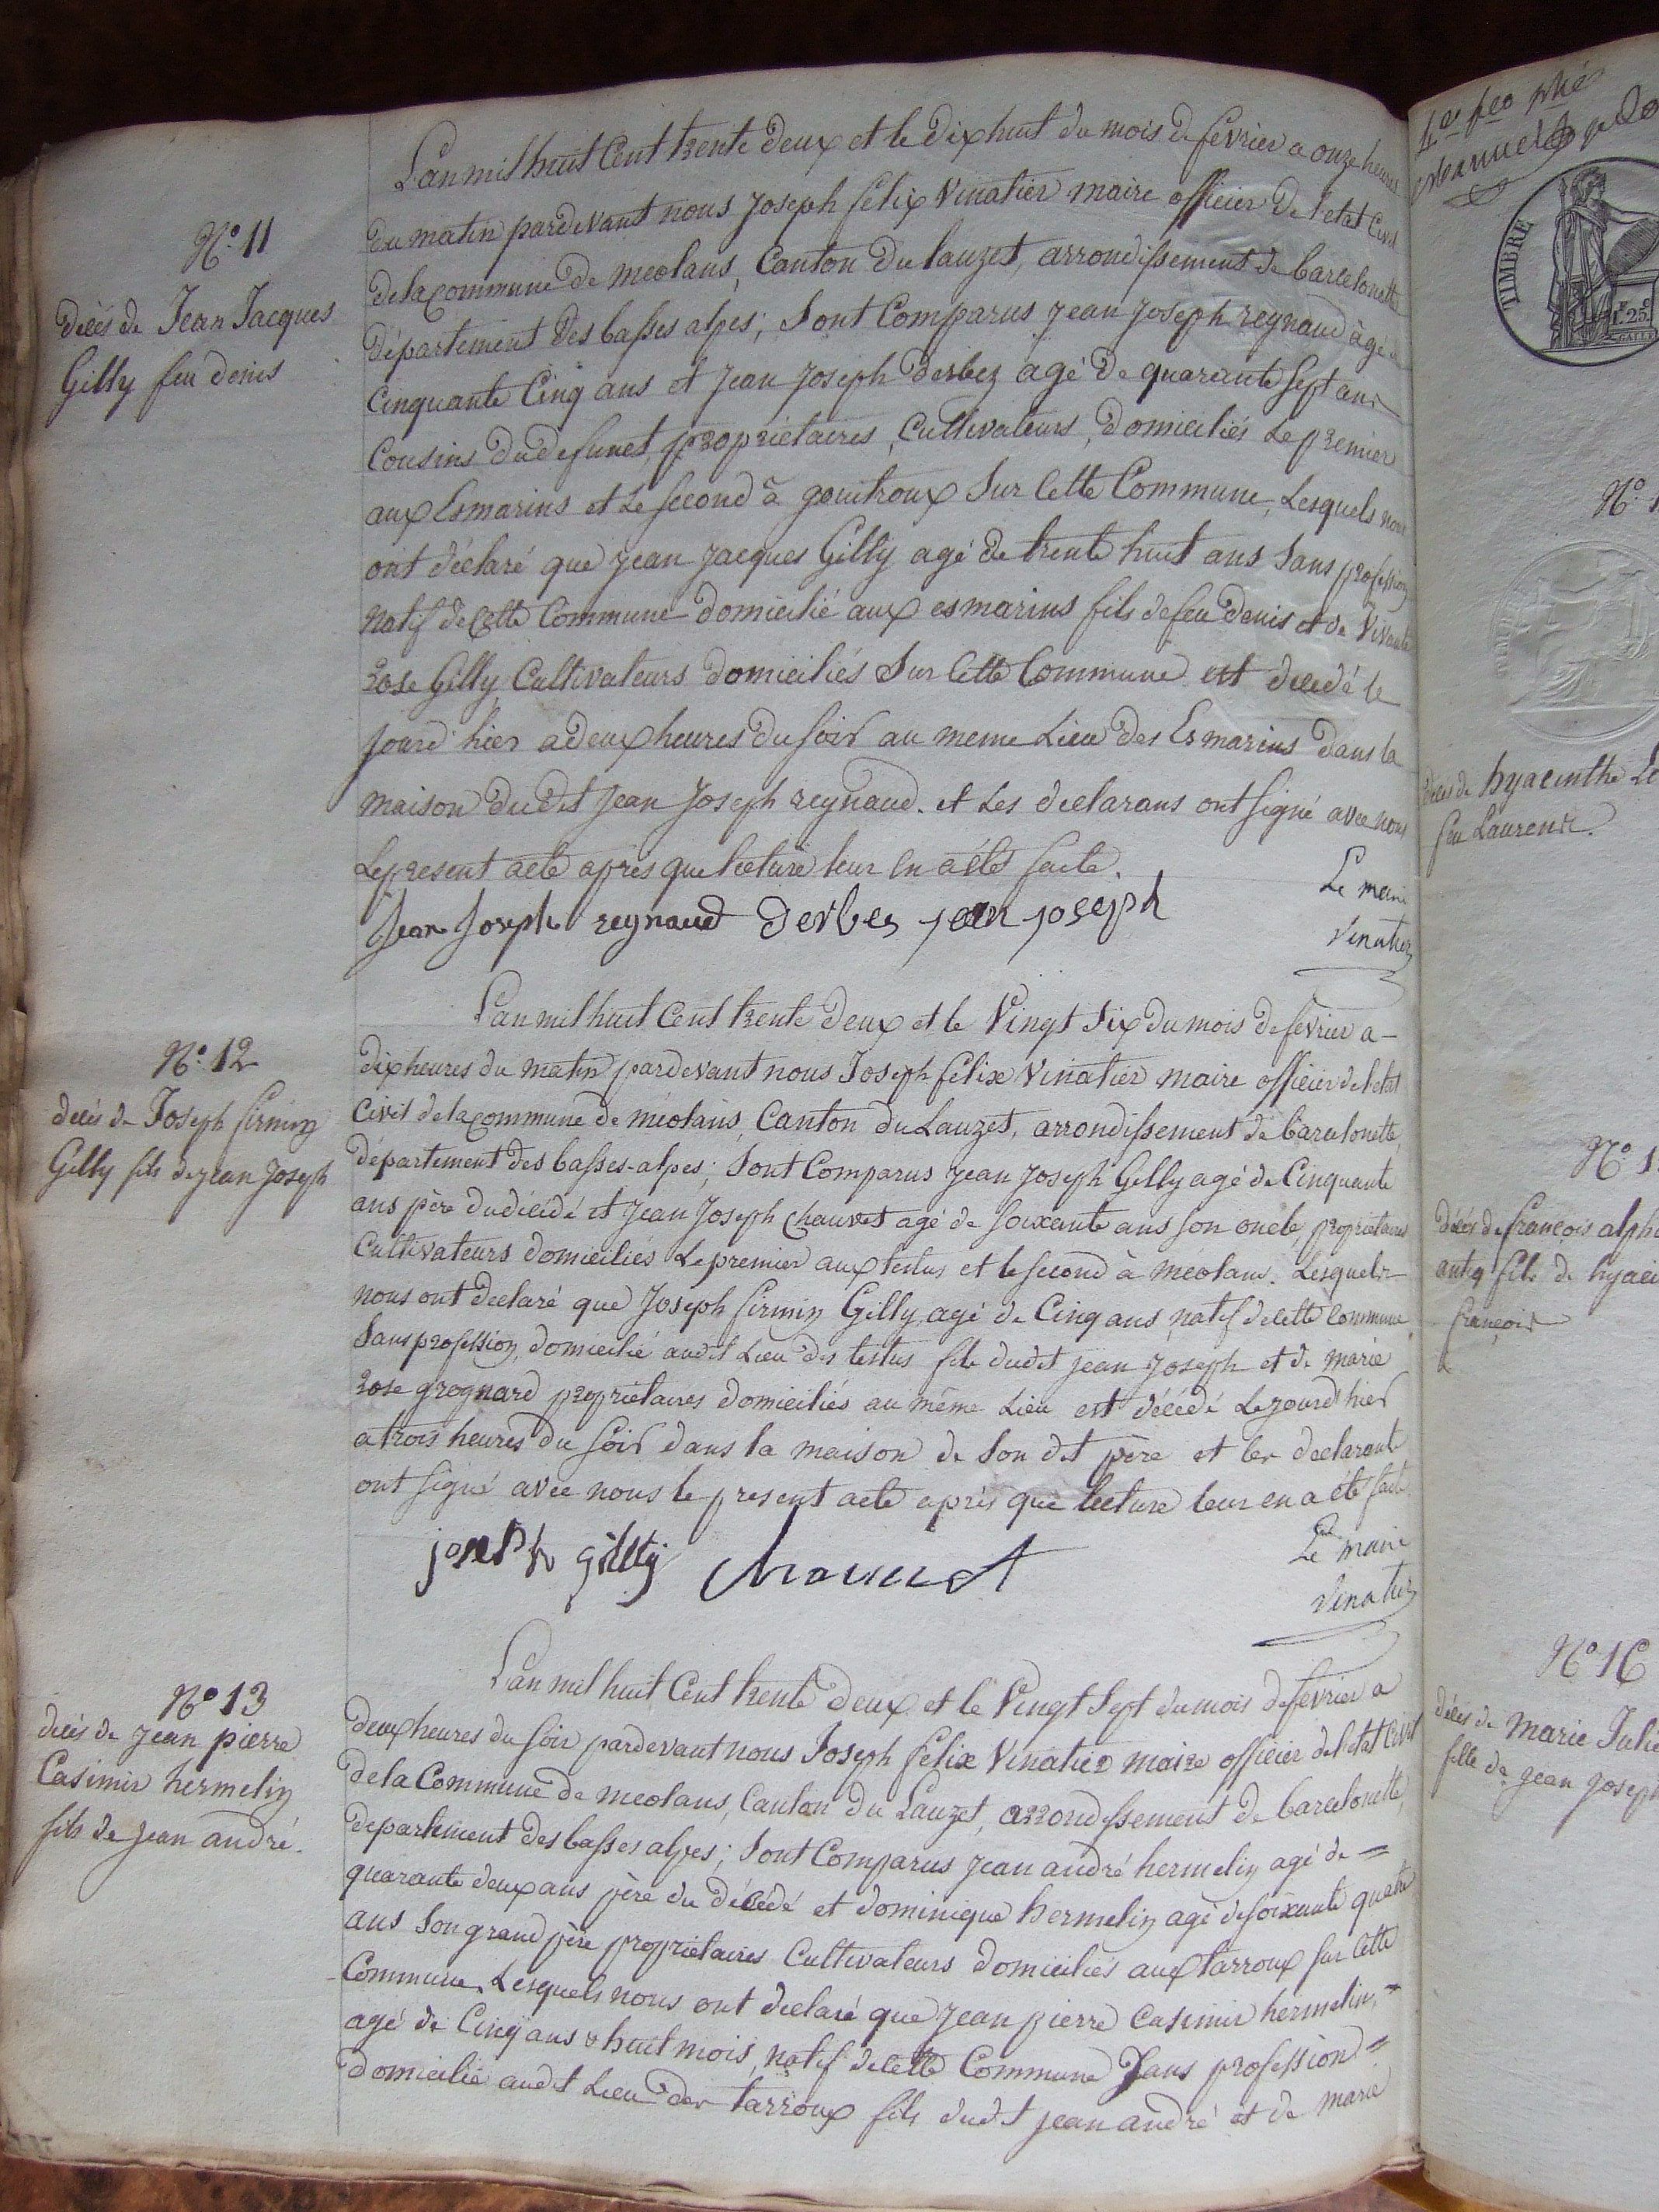 N.º 11
décès de Jean Jacques
Gilly feu denis
L'an mil huit Cent trente deux et le dix huit du mois de février a onze heures
du matin pardevant nous Joseph félix Vinatier maire officier de l'etat Civil
de la commune de meolans, Canton du lauzet, arrondissement de barcelonette
département des basses alpes; Sont Comparus jean joseph reynaud âgé de
Cinquante Cinq ans et jean joseph derbez agé de quarante sept ans
Cousins du defunct, propriétaires, cultivateurs, domiciliés Le premier
aux Esmarins et Le second à gouitroux Sur Cette Commune, Lesquels nous
ont déclaré que jean jacques Gilly agé de trente huit ans Sans profession
natif de Cette Commune domicilié aux esmarins fils de feu denis et de
rose Gilly Cultivateurs domiciliés Sur Cette Commune est decedé le
jourd'hier a deux heures du soir au meme Lieu des Esmarins dans la
maison du dit jean joseph reynaud. et Les declarans ont signé avec nous
Le present acte après que lecture leur en a été faite.
Jean Joseph reynaud derbes jean joseph
Le maire
Vinatier
N.º 12
décès de Joseph firmin
Gilly fils de jean joseph
L'an mil huit Cent trente deux et le Vingt Six du mois de fevrier a
dix heures du matin pardevant nous Joseph félix Vinatier maire officier de l'etat
civil de la commune de méolans, Canton du Lauzet, arrondissement de barcelonette,
département des basses-alpes; Sont Comparus jean joseph Gilly agé de Cinquante
ans père du décédé et jean joseph chauvet agé de soixante ans son oncle, propriétaires
Cultivateurs domiciliés Le premier aux testus et le second à meolans. Lesquels
nous ont declaré que joseph firmin Gilly, agé de Cinq ans, natif de cette Commune
Sans profession, domicilié audit Lieu des testus fils dudit jean joseph et de marie
rose grognard propriétaires domiciliés au même Lieu est décédé Le jourd'hier
a trois heures du soir dans la maison de son dit père et les declarants
ont signé avec nous le present acte après que lecture leur en a été faite
joseph gilly chauvet
Le maire
Vinatier
Nº 13
décès de jean pierre
Casimir hermelin
fils de jean andré.
L'an mil huit Cent trente deux et le Vingt Sept du mois de fevrier a
deux heures du soir pardevant nous Joseph félix Vinatier maire officier de l'etat Civil
de la Commune de meolans, Canton du Lauzet, arrondissement de barcelonette,
departement des basses alpes; Sont Comparus jean andré hermelin agé de =
quarante deux ans père du décédé et dominique hermelin agé de soixante quatre
ans Son grand père propriétaires Cultivateurs domiciliés aux tarroux sur Cette
Commune. Lesquels nous ont declaré que jean pierre Casimir hermelin, =
agé de Cinq ans & huit mois, natif de cette Commune Sans profession =
domicilié audit Lieu des tarroux fils dudit jean andré et de marie
TIMBRE
F. 25.c
Nº 1
décès de hyacinthe Le
feu Laurent.
Nº 1
décès de françois alph
fils de hyaci
françois
Nº 16
décès de Marie Julie
fille de jean joseph